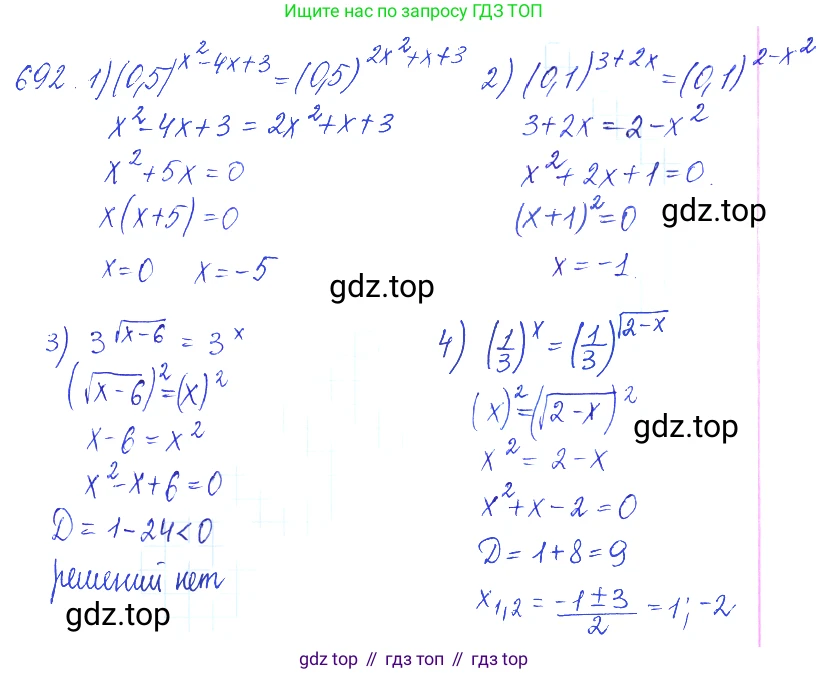 Ищите нас по запросу ГДЗ ТОП
692. 1) (0,5)^{x²-4x+3} = (0,5)^{2x²+x+3}
x²-4x+3 = 2x²+x+3
x²+5x=0
x(x+5)=0
x=0 x=-5
gdz.top
2) (0,1)^{3+2x} = (0,1)^{2-x²}
3+2x=2-x²
x²+2x+1=0.
(x+1)²=0
gdz.top
x=-1.
3) 3^{√(x-6)} = 3^x
(√(x-6))²=(x)²
x-6=x²
x²-x+6=0
D=1-24<0
решений нет
gdz.top
4) (1/3)^x = (1/3)^{√(2-x)}
(x)²=(√(2-x))²
gdz.top
x²=2-x
x²+x-2=0
D=1+8=9
x_{1,2} = (-1±3)/2 = 1; -2
gdz top // гдз топ // гдз top